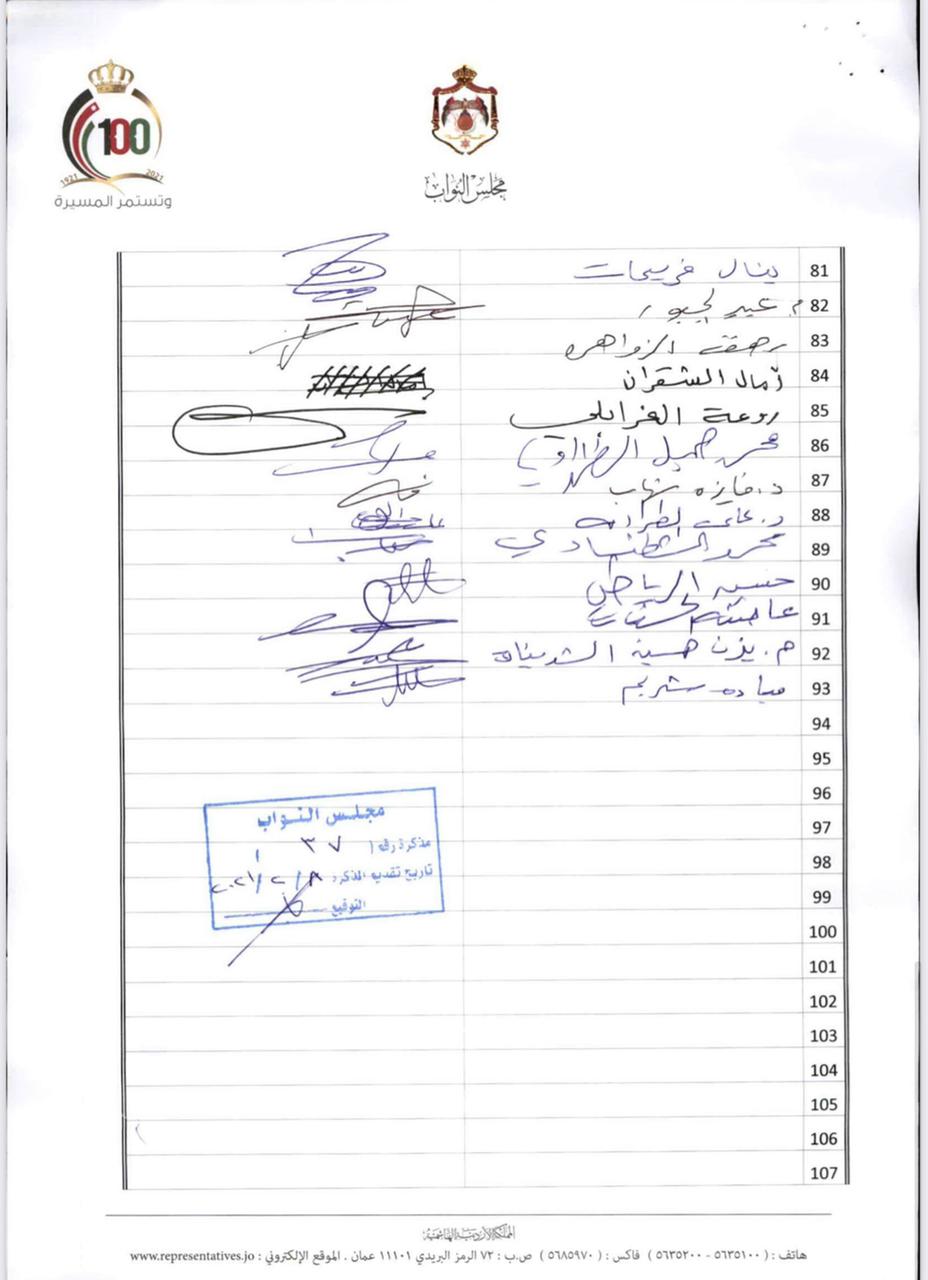 100
1921 2021
وتستمر المسيرة
مجلس النواب
81 ينال فريحات
82 م. عبير الجبور
83 رهق الزواهره
84 آمال الشقران
85 روعة الغرابلي
86 جميل
87 د. فايزه شهاب
88 د. علي الطراونه
89 محمد الشطناوي
90 حسين الرياطي
91 عائشة الحسنات
92 م. يزن حسين الشديفات
93 مياده شريم
94
95
96
97
98
99
100
101
102
103
104
105
106
107
مجلس النواب
مذكرة رقم ( ٣٧
تاريخ تقديم المذكرة ٨ / ٢ / ٢٠٢١
التوقيع
المملكة الأردنية الهاشمية
هاتف : ( ٥٦٣٥١٠٠ - ٥٦٣٥٢٠٠ ) فاكس : ( ٥٦٨٥٩٧٠ ) ص.ب : ٧٢ الرمز البريدي ١١١٠١ عمان . الموقع الإلكتروني : www.representatives.jo